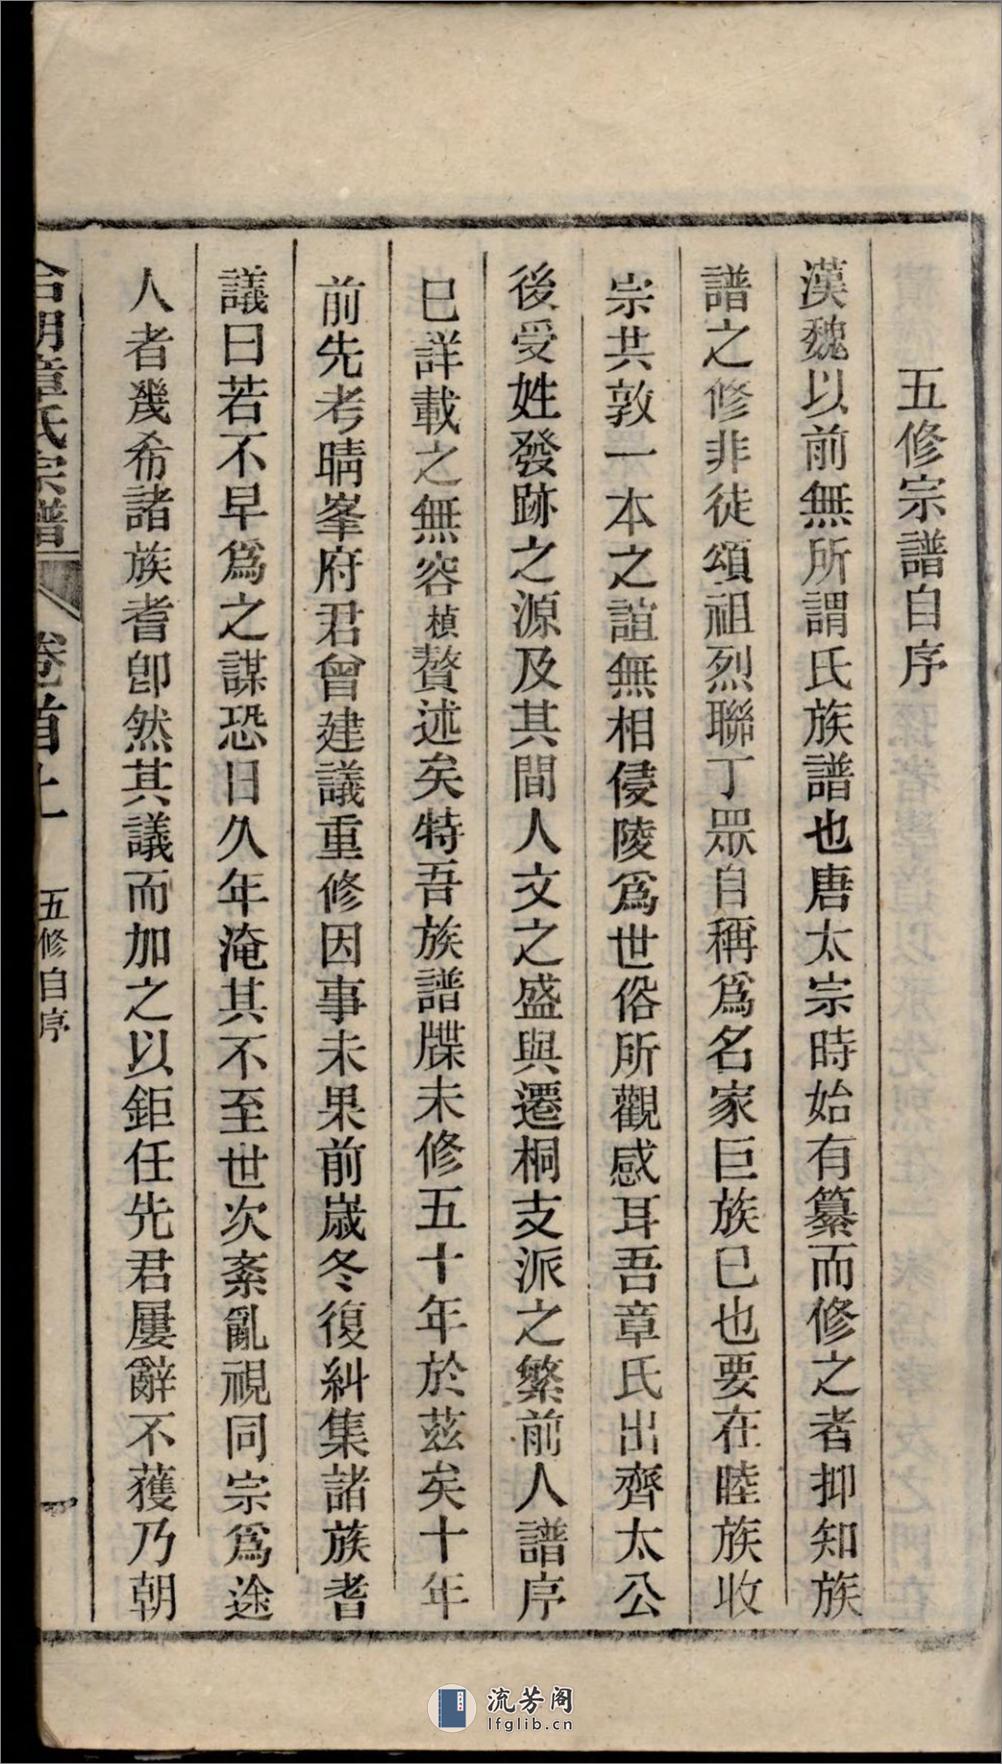 五修宗譜自序
漢魏以前無所謂氏族譜也唐太宗時始有纂而修之者抑知族
譜之修非徒頌祖烈聯丁眾自稱爲名家巨族已也要在睦族收
宗共敦一本之誼無相侵陵爲世俗所觀感耳吾章氏出齊太公
後受姓發跡之源及其間人文之盛與遷桐支派之繁前人譜序
已詳載之無容楨贅述矣特吾族譜牒未修五十年於茲矣十年
前先考晴峯府君曾建議重修因事未果前歲冬復糾集諸族耆
議曰若不早爲之謀恐日久年淹其不至世次紊亂視同宗爲途
人者幾希諸族耆卽然其議而加之以鉅任先君屢辭不獲乃朝
章氏宗譜 卷首上 五修自序 一
流芳阁
lfglib.cn